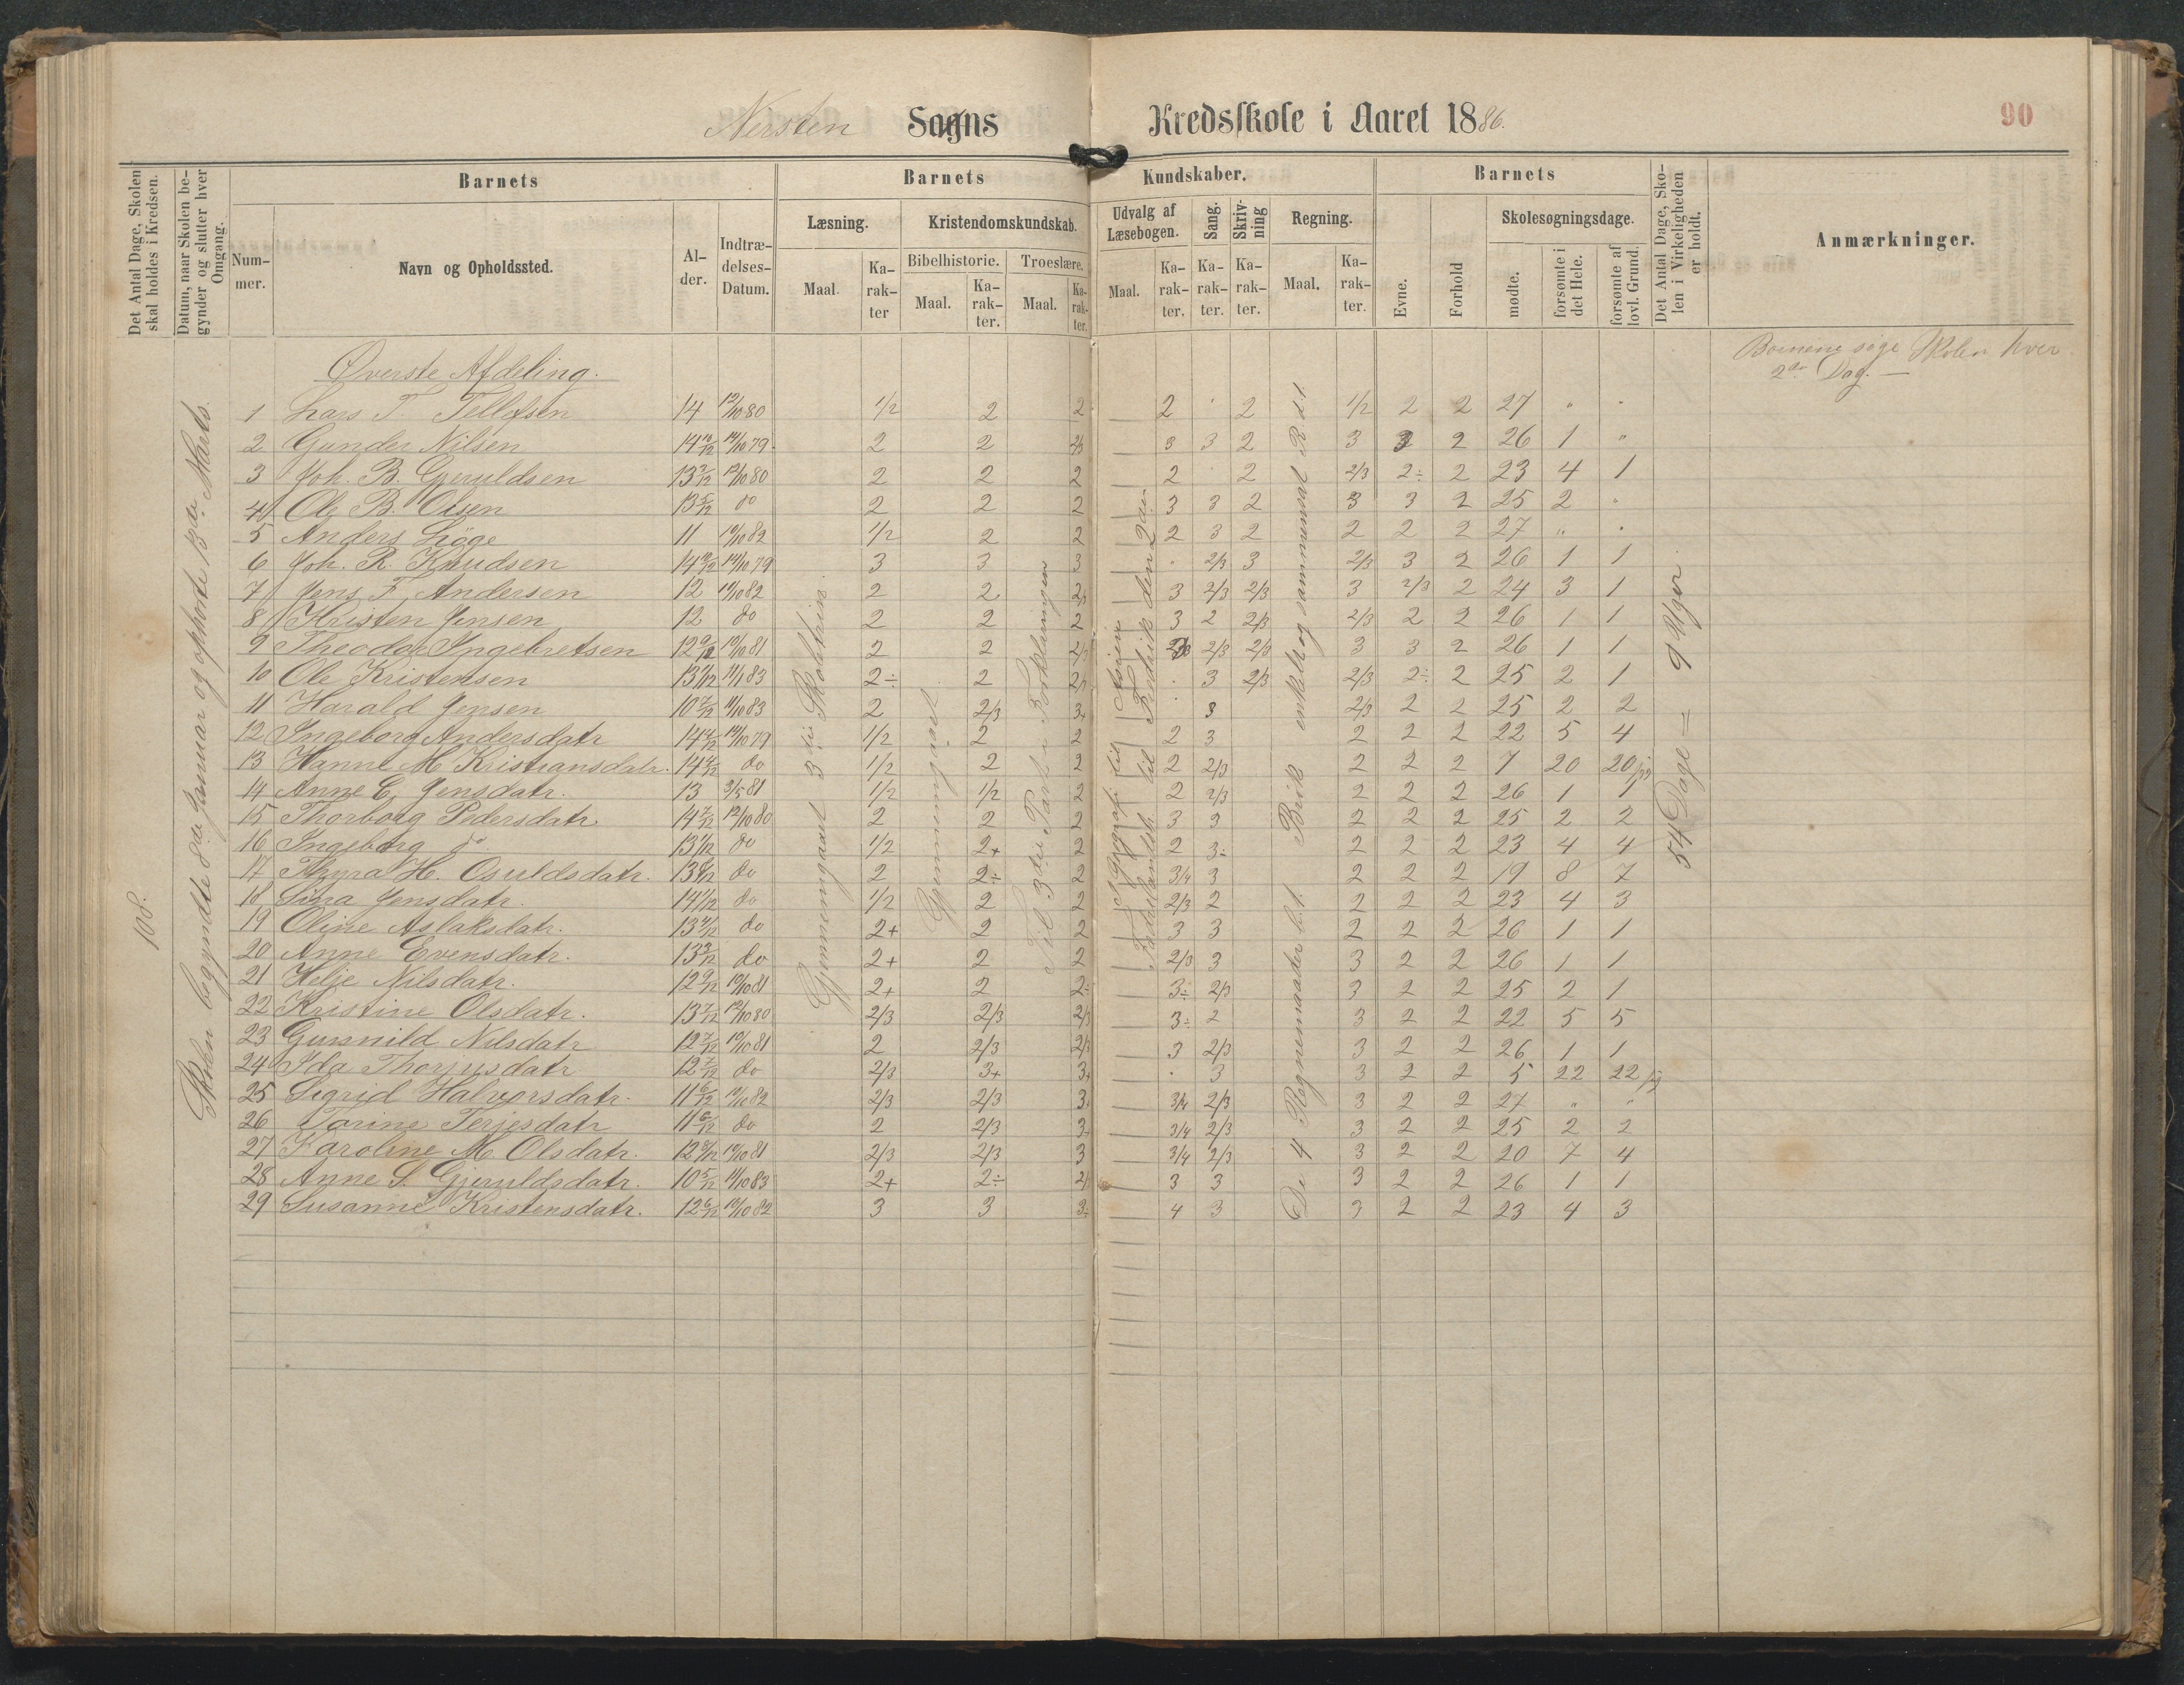 Nersten Sogns Kredsskole i Aaret 1886.
90
Det Antal Dage, Skolen skal holdes i Kredsen.
Datum, naar Skolen begynder og slutter hver Omgang.
Barnets
Barnets Kundskaber.
Barnets
Det Antal Dage, Skolen i Virkeligheden er holdt.
Anmærkninger.
Nummer.
Navn og Opholdssted.
Alder.
Indtrædelses-Datum.
Læsning.
Kristendomskundskab.
Udvalg af Læsebogen.
Sang.
Skrivning
Regning.
Evne.
Forhold
Skolesøgningsdage.
Bibelhistorie.
Troeslære.
Maal.
Karakter
Maal.
Karakter.
Maal.
Karakter.
Maal.
Karakter.
Karakter.
Karakter.
Maal.
Karakter.
mødte.
forsømte i det Hele.
forsømte af lovl. Grund.
108.
Skolen begyndte 8de Januar og ophørte 13de Marts.
Gjennemgaaet 3die Skoletrin.
Gjennemgaaet
Til 3die Part i Forklaringen
I Geografi til Asien
Fædrelandsh. til Fredrik den 2den
De 4 Regnemaader h.t. Brøk enkelt og sammensat R. d. t.
54 Dage = 9 Uger
Børnene søge Skolen hver
2den Dag. —
Øverste Afdeling.
1 Lars T. Tellefsen 14 12/10 80 1/2 2 2 2 " 2 1/2 2 2 27 " "
2 Gunder Nilsen 14 10/12 14/10 79 2 2 2/3 3 3 2 3 3 2 26 1 "
3 Joh. B. Gjeruldsen 13 7/12 12/10 80 2 2 2 2 2 2/3 2÷ 2 23 4 1
4 Ole B. Olsen 13 5/12 do 2 2 2 3 3 2 3 3 2 25 2 "
5 Anders Løge 11 10/10 82 1/2 2 2 2 3 2 2 2 2 27 " "
6 Joh. R. Knudsen 14 10/12 14/10 79 3 3 3 " 2/3 3 2/3 3 2 26 1 1
7 Jens F. Andersen 12 10/10 82 2 2 2/3 3 2/3 2/3 3 2/3 2 24 3 1
8 Kristen Jensen 12 do 2 2 2 3 2 2/3 2/3 2 2 26 1 1
9 Theodor Ingebretsen 12 9/12 10/10 81 2 2 2/3 2/3 2/3 2/3 3 3 2 26 1 1
10 Ole Kristensen 13 11/12 11/1 83 2÷ 2 2/3 " 3 2/3 2/3 2÷ 2 25 2 1
11 Harald Jensen 10 7/12 11/10 83 2 2/3 3+ " 3 2/3 2 2 25 2 2
12 Ingeborg Andersdatr 14 4/12 14/10 79 1/2 2 2 2 3 2 2 2 22 5 4
13 Hanne M. Kristiansdatr. 14 4/12 do 1/2 2 2 2 2/3 2 2 2 7 20 20
14 Anne C. Jensdatr. 13 3/5 81 1/2 1/2 2 2 2/3 2 2 2 26 1 1
15 Thorborg Pedersdatr 14 7/12 12/10 80 2 2 2 3 3 2 2 2 25 2 2
16 Ingeborg do 13 1/12 do 1/2 2+ 2 2 3÷ 2 2 2 23 4 4
17 Thyra H. Osuldsdatr. 13 8/12 do 2 2÷ 2 3/4 3 2 2 2 19 8 7
18 Sina Jensdatr. 14 1/12 do 1/2 2 2 2/3 2 2 2 2 23 4 3
19 Oline Aslaksdatr. 13 4/12 do 2+ 2 2 3 3 2 2 2 26 1 1
20 Anne Evensdatr. 13 3/12 do 2+ 2 2 2/3 3 3 2 2 26 1 1
21 Helje Nilsdatr. 12 9/12 10/10 81 2+ 2 2÷ 3÷ 2/3 3 2 2 25 2 1
22 Kristine Olsdatr. 13 7/12 12/10 80 2/3 2/3 2/3 3÷ 2 3 2 2 22 5 5
23 Gunnild Nilsdatr 12 7/12 10/10 81 2 2/3 2/3 3 2/3 3 2 2 26 1 1
24 Ida Thorjusdatr 12 7/12 do 2/3 3+ 3+ " 3 3 2 2 5 22 22
25 Sigrid Halvorsdatr. 11 6/12 10/10 82 2/3 2/3 3+ 3/4 2/3 3 2 2 27 " "
26 Tarine Terjesdatr 11 6/12 do 2 2/3 3 3/4 2/3 3 2 2 25 2 2
27 Karoline M. Olsdatr. 12 8/12 10/10 81 2/3 2/3 3 3/4 2/3 3 2 2 20 7 4
28 Anne S. Gjeruldsdatr. 10 5/12 11/10 83 2+ 2÷ 2/3 3 3 3 2 2 26 1 1
29 Susanne Kristensdatr. 12 6/12 10/10 82 3 3 3÷ 4 3 3 2 2 23 4 3